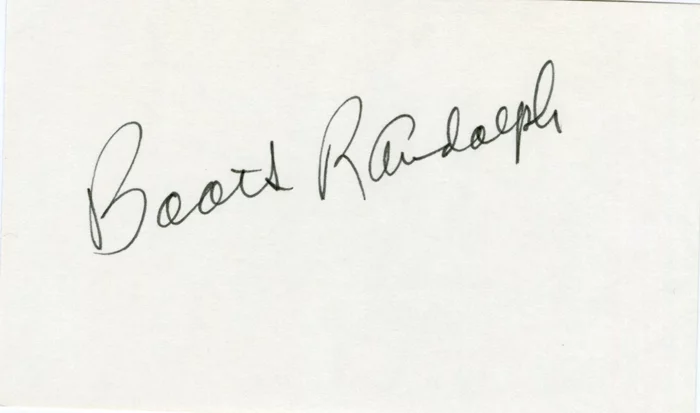 Boots Randolph